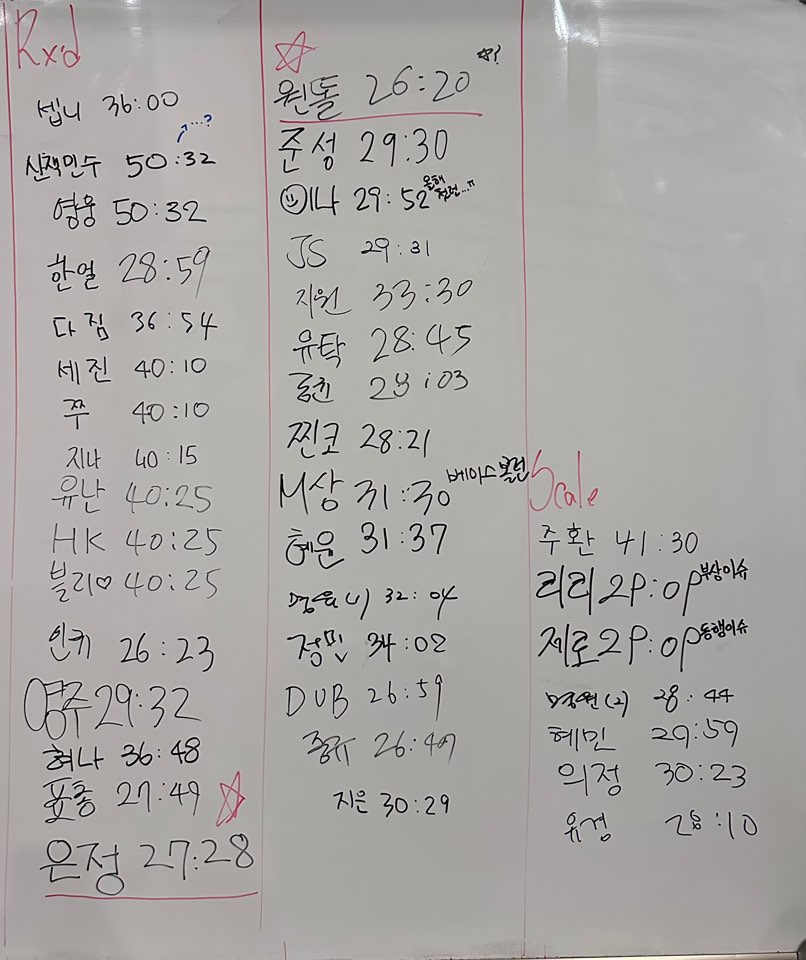 Rx'd
셉니 36:00
산책민수 50:32 ...?
영웅 50:32
한얼 28:59
다짐 36:54
세진 40:10
쭈 40:10
지나 40:15
유난 40:25
HK 40:25
블리♡ 40:25
인키 26:23
영주 29:32
혀나 36:48
표총 27:49
은정 27:28
☆
원돌 26:20 ☆?
준성 29:30
이나 29:52
JS 29:31
지원 33:30
유탁 28:45
28:03
찐코 28:21
M상 31:30 베이스볼런
혜운 31:37
32:04
정민 34:02
DUB 26:59
중규 26:47
지은 30:29
Scale
주환 41:30
리리 2P:0P 부상이슈
제로 2P:0P 동행이슈
(2) 28:44
혜민 29:59
의정 30:23
유경 28:10